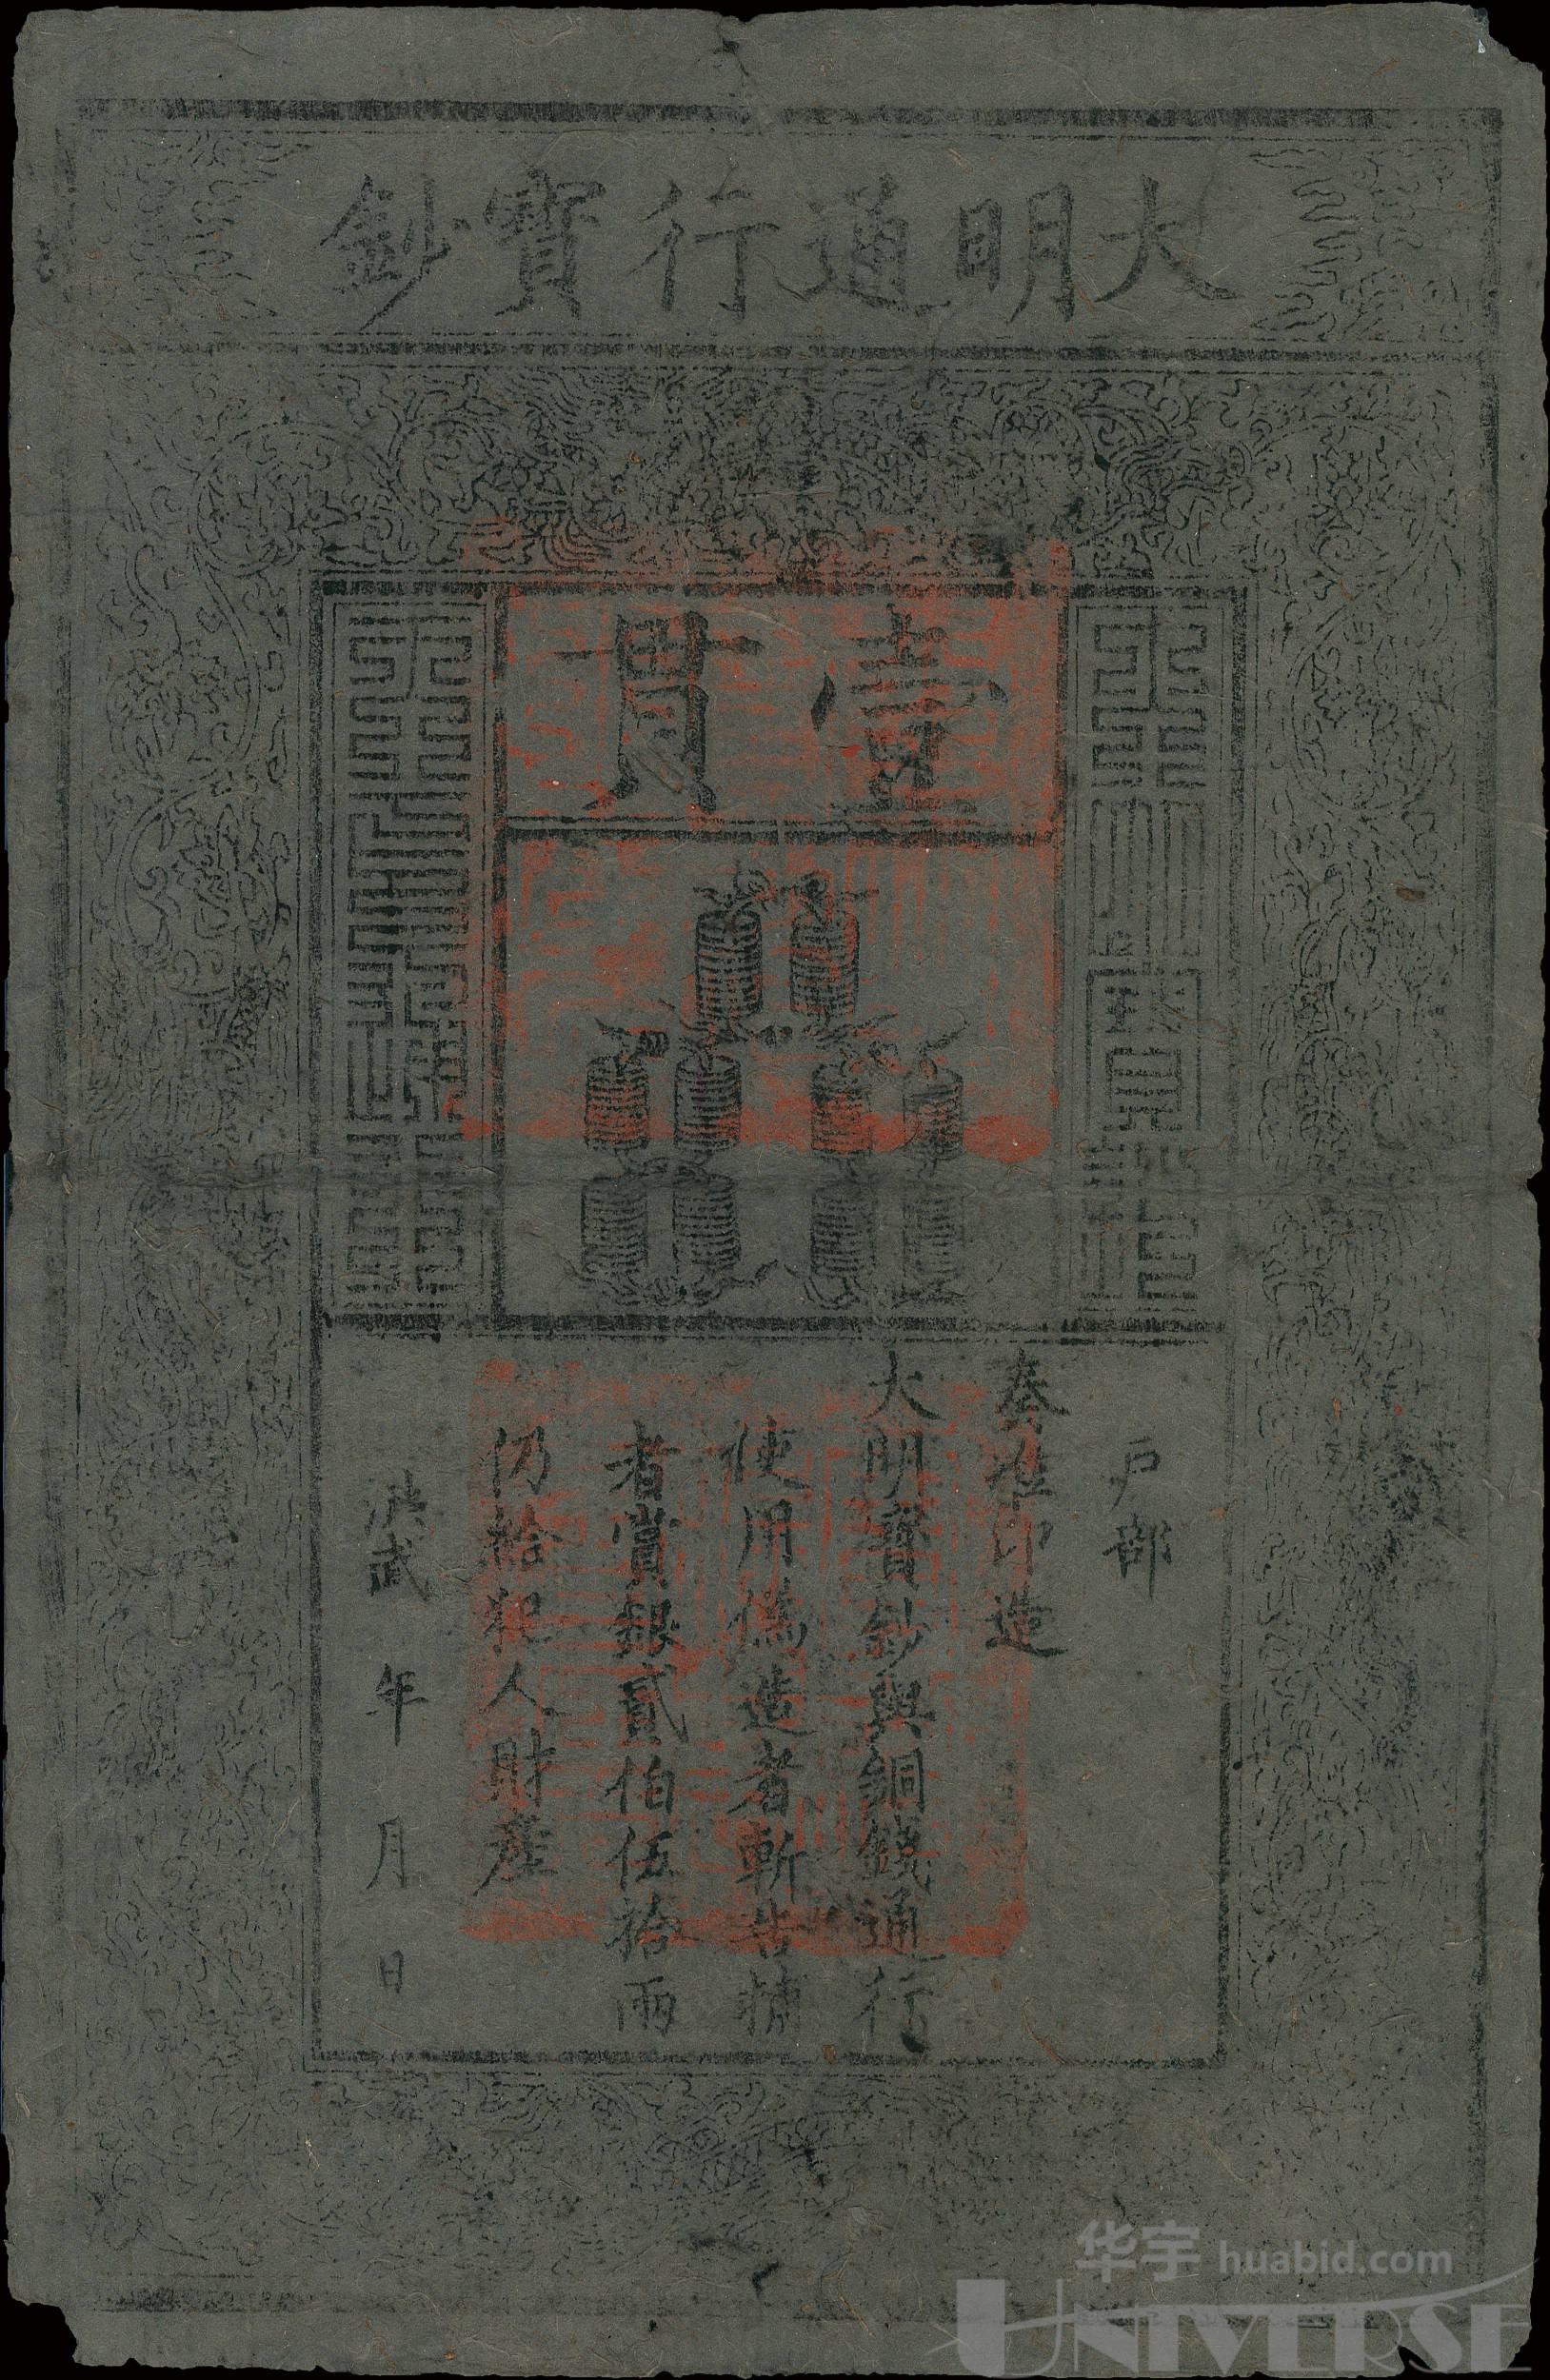 大明通行寶鈔
壹貫
大明寶鈔
天下通行
戶部
奏准印造
大明寶鈔與銅錢通行
使用偽造者斬告捕
者賞銀貳伯伍拾兩
仍給犯人財產
洪武 年 月 日
华宇 huabid.com
UNIVERSE